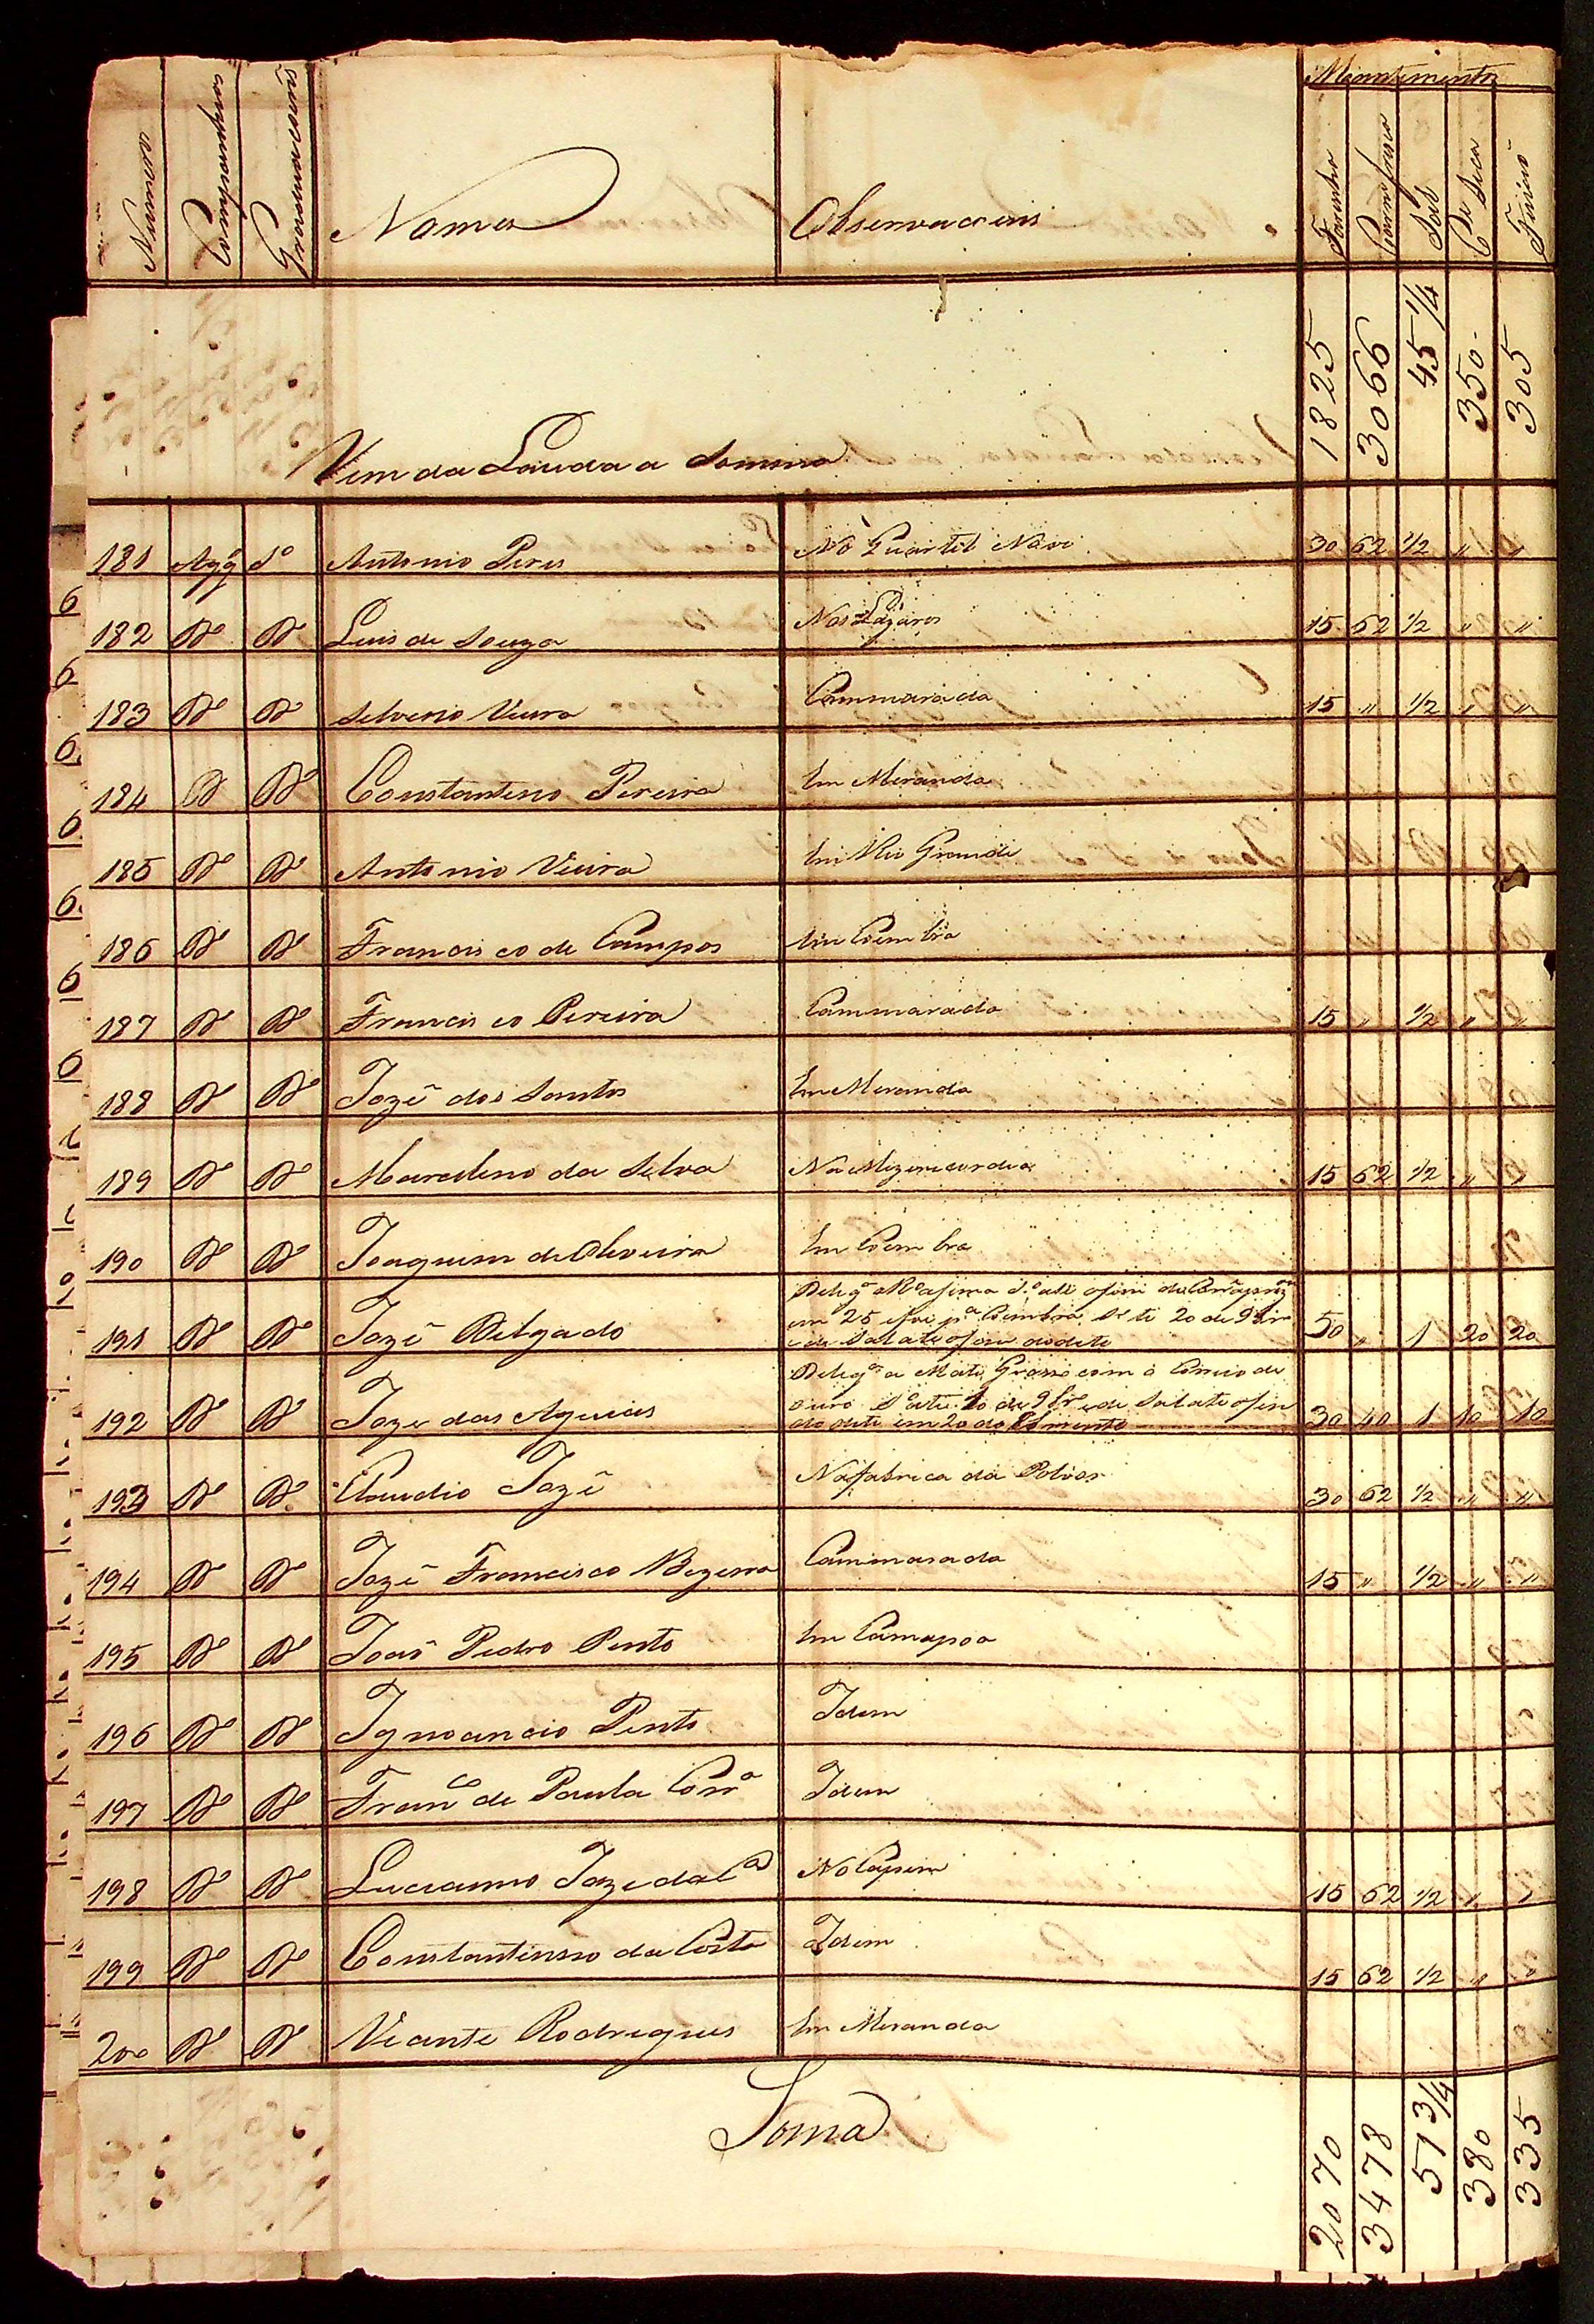 Mantimentos
Numeros Companhias Graduacoens Nomes Observacoens Farinha Carne fresca Sal Cê seca Feijaõ
Vem da Lauda a Somma 1825 3066 45 1/4 350 305
181 Agg.º S.º Antonio Peres No Quartel Novo 30 62 1/2 " "
182 D.º D.º Luis de Souza Nos Lazaros 15 62 1/2 " "
183 D.º D.º Selverio Vieira Cammarada 15 " 1/2 " "
184 D.º D.º Constantino Pereira Em Meranda
185 D.º D.º Antonio Vieira Em Rio Grande
186 D.º D.º Francisco de Campos Em Coembra
187 D.º D.º Francisco Pereira Cammarada 15 " 1/2 " "
188 D.º D.º Jozê dos Santos Em Meranda
189 D.º D.º Marcelino da Selva Na Mizericordia 15 62 1/2 " "
190 D.º D.º Joaquim de Oliveira Em Coembra
191 D.º D.º Jozê Delgado
em 25 e foi p.ª Coimbra
50 " 1 20 20
192 D.º D.º Joze das Aguias
Delig.ª a Mato Grosso com o Correio de
30 40 1 10 10
193 D.º D.º Claudio Jozê Na fabrica da Polvor 30 62 1/2 " "
194 D.º D.º Jozê Francisco Bezerra Cammarada 15 " 1/2 " "
195 D.º D.º Joaõ Pedro Pinto Em Camapoa
196 D.º D.º Ignoancio Pinto Idem
197 D.º D.º Fran.co de Paula Corr.ª Idem
198 D.º D.º Lucianno Joze da C.ª No Capim 15 62 1/2 " "
199 D.º D.º Constantinno da Costa Idem 15 62 1/2 " "
200 D.º D.º Vicente Rodrigues Em Meranda
Soma 2070 3478 51 3/4 380 335